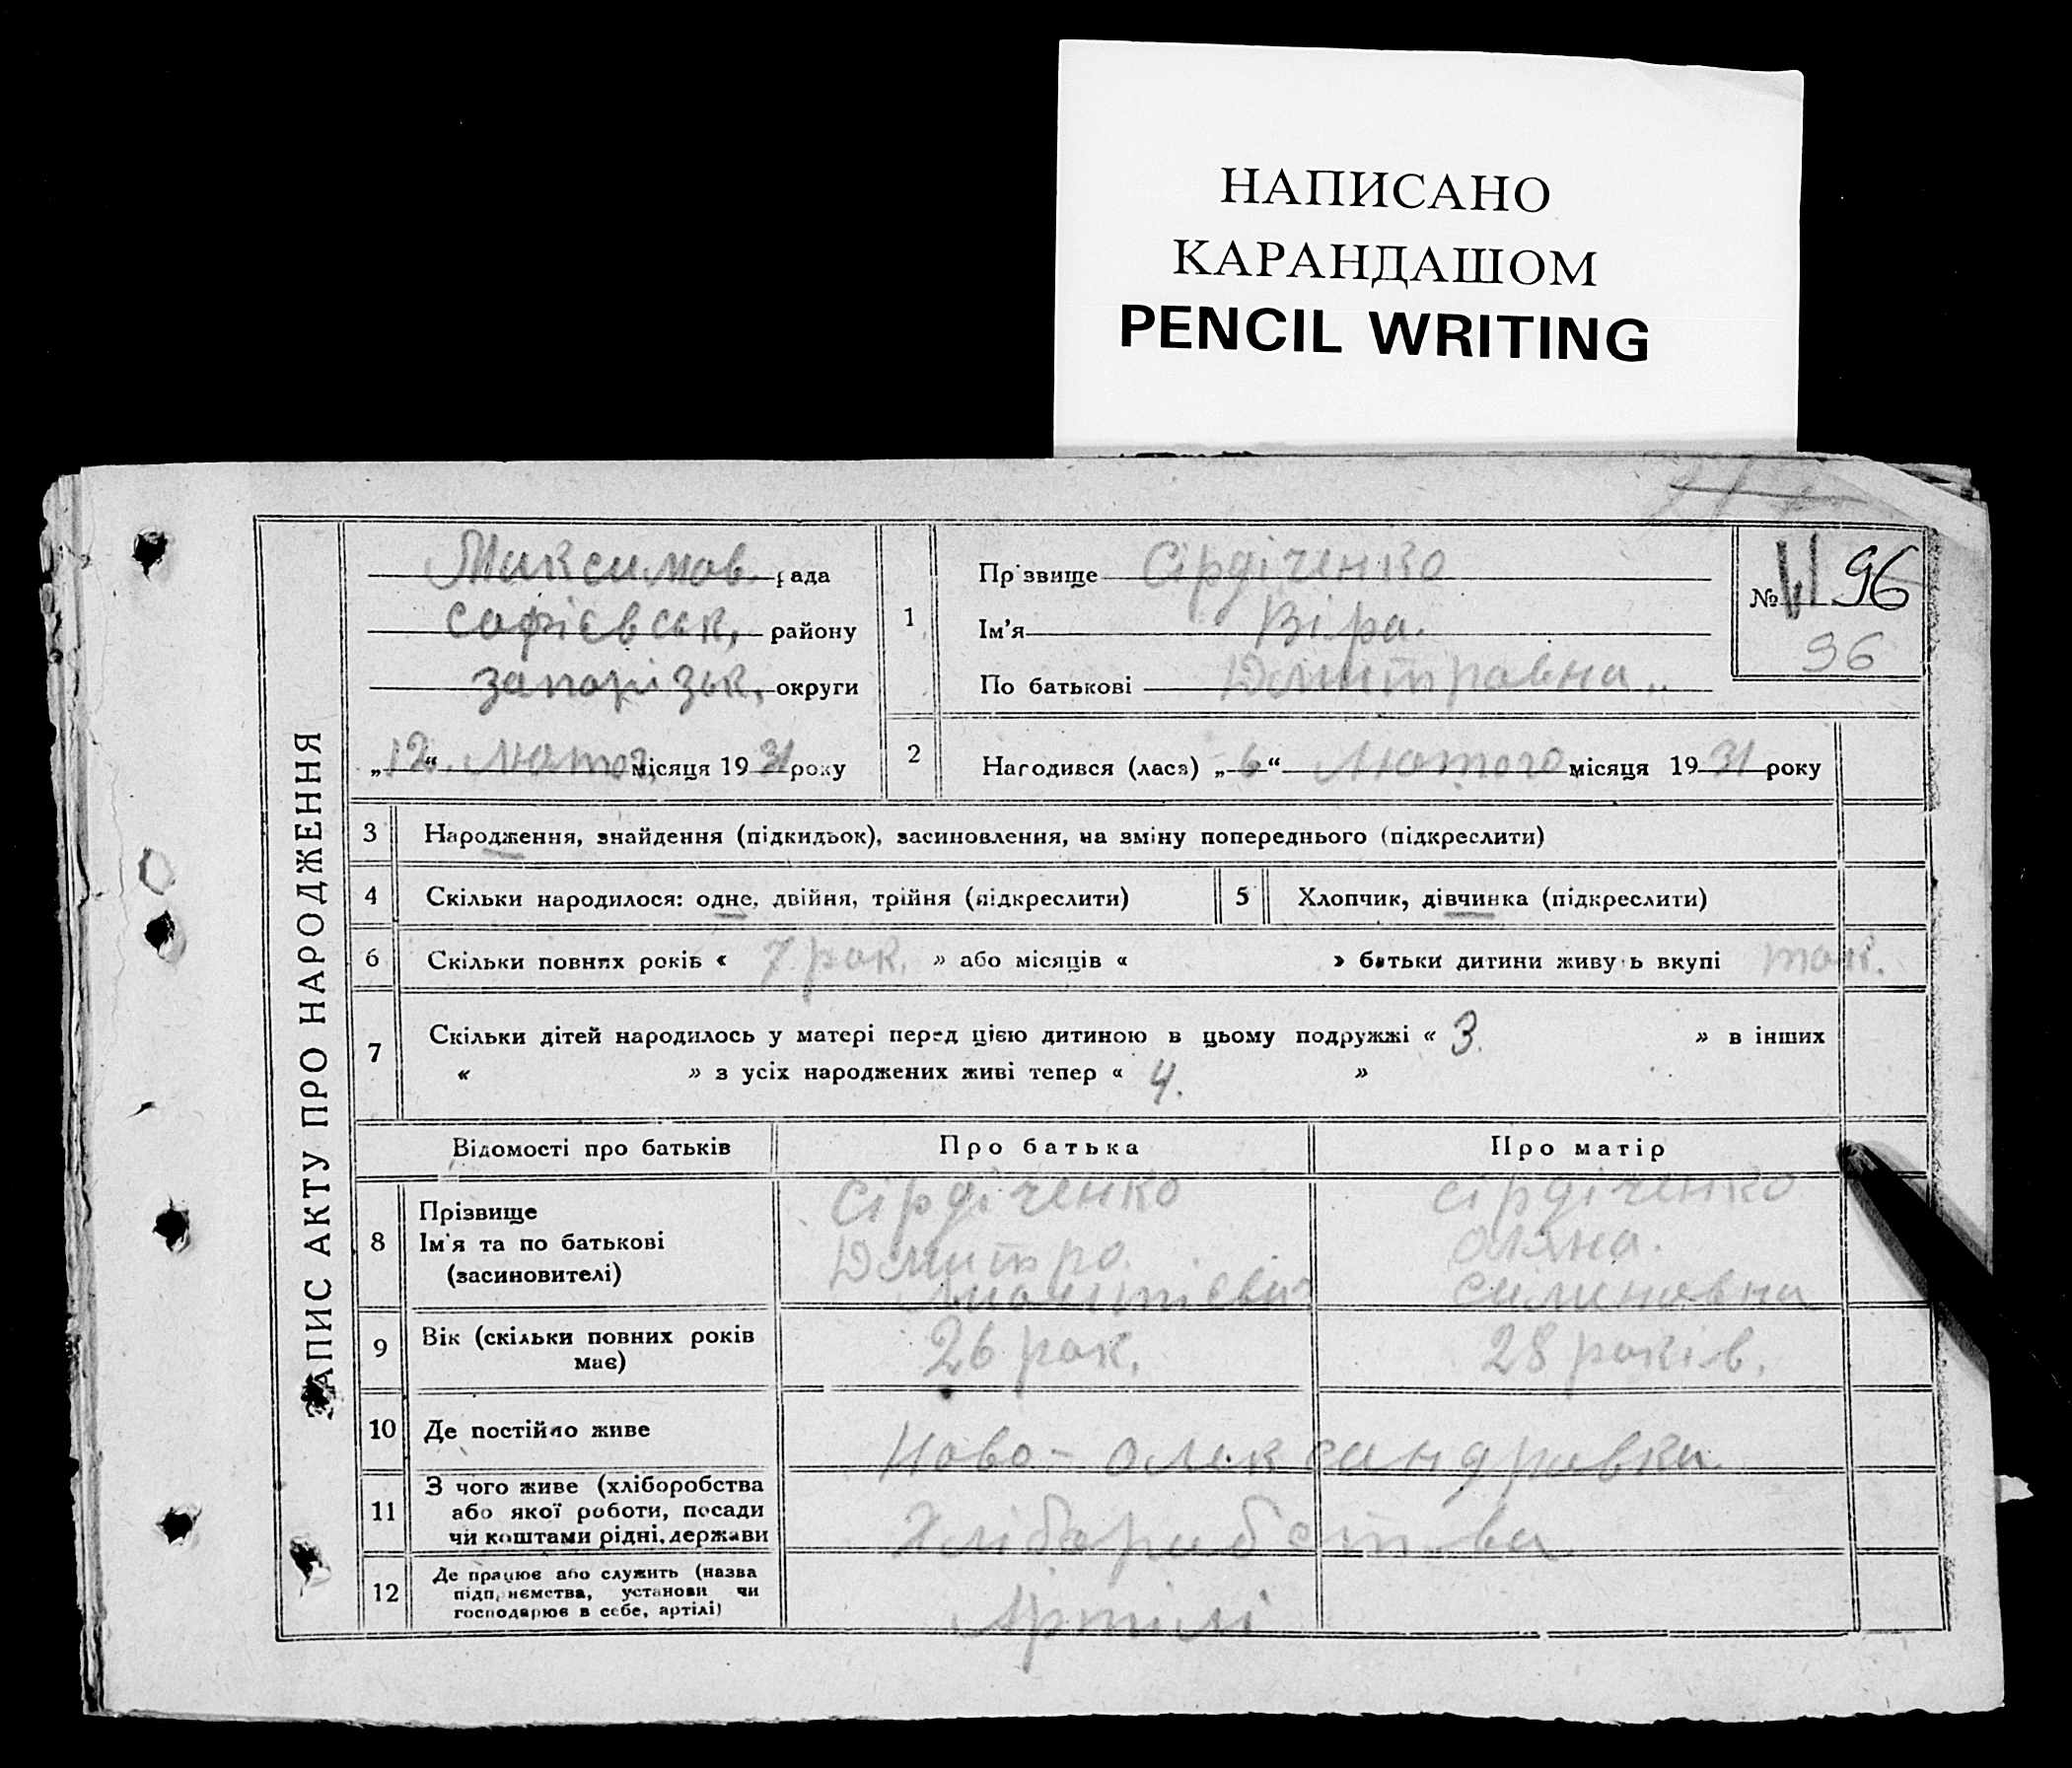 НАПИСАНО
КАРАНДАШОМ
PENCIL WRITING
ЗАПИС АКТУ ПРО НАРОДЖЕННЯ
Максимов. рада
Софієвськ, району
Запорізьк, округи
„12“ Лютог, місяця 1931 року
1
Прізвище Сірдіченко
Ім'я Віра.
По батькові Дмитровна
№ VI 96
96
2
Народився (лася) „6“ Лютого місяця 1931 року
3 Народження, знайдення (підкидьок), засиновлення, на зміну попереднього (підкреслити)
4 Скільки народилося: одне, двійня, трійня (підкреслити)
5 Хлопчик, дівчинка (підкреслити)
6 Скільки повних років « 7 рок. » або місяців « » батьки дитини живуть вкупі так.
7 Скільки дітей народилось у матері перед цією дитиною в цьому подружжі « 3. » в інших
« » з усіх народжених живі тепер « 4. »
Відомості про батьків
Про батька
Про матір
8 Прізвище
Ім'я та по батькові
(засиновителі)
Сірдіченко
Дмитро.
Сірдіченко
Оляна.
Симоновна
9 Вік (скільки повних років
має)
26 рок.
28 років.
10 Де постійно живе
Ново-Олександровка
11 З чого живе (хліборобства
або якої роботи, посади
чи коштами рідні, держави
Хліборобства
12 Де працює або служить (назва
підприємства, установи чи
господарює в себе, артілі)
Артілі